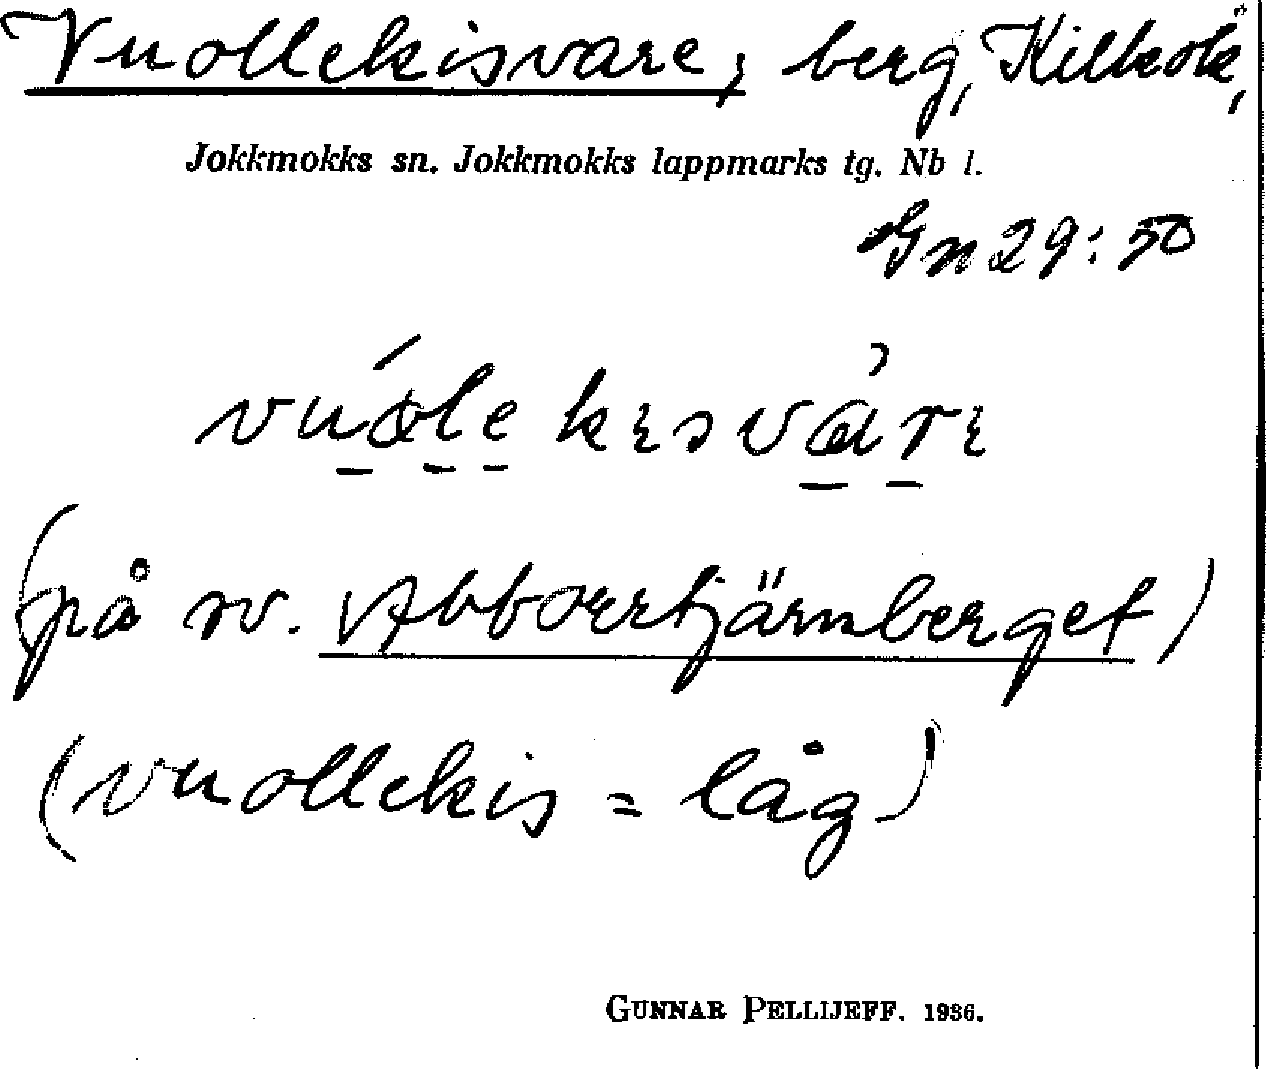 Vuollekisvare, berg, Kilkok,
Jokkmokks sn. Jokkmokks lappmarks tg. Nb l.
Gn 29:50
(på sv. Abborrtjärnberget)
(vuollekis = låg)
GUNNAR PELLIJEFF. 1936.